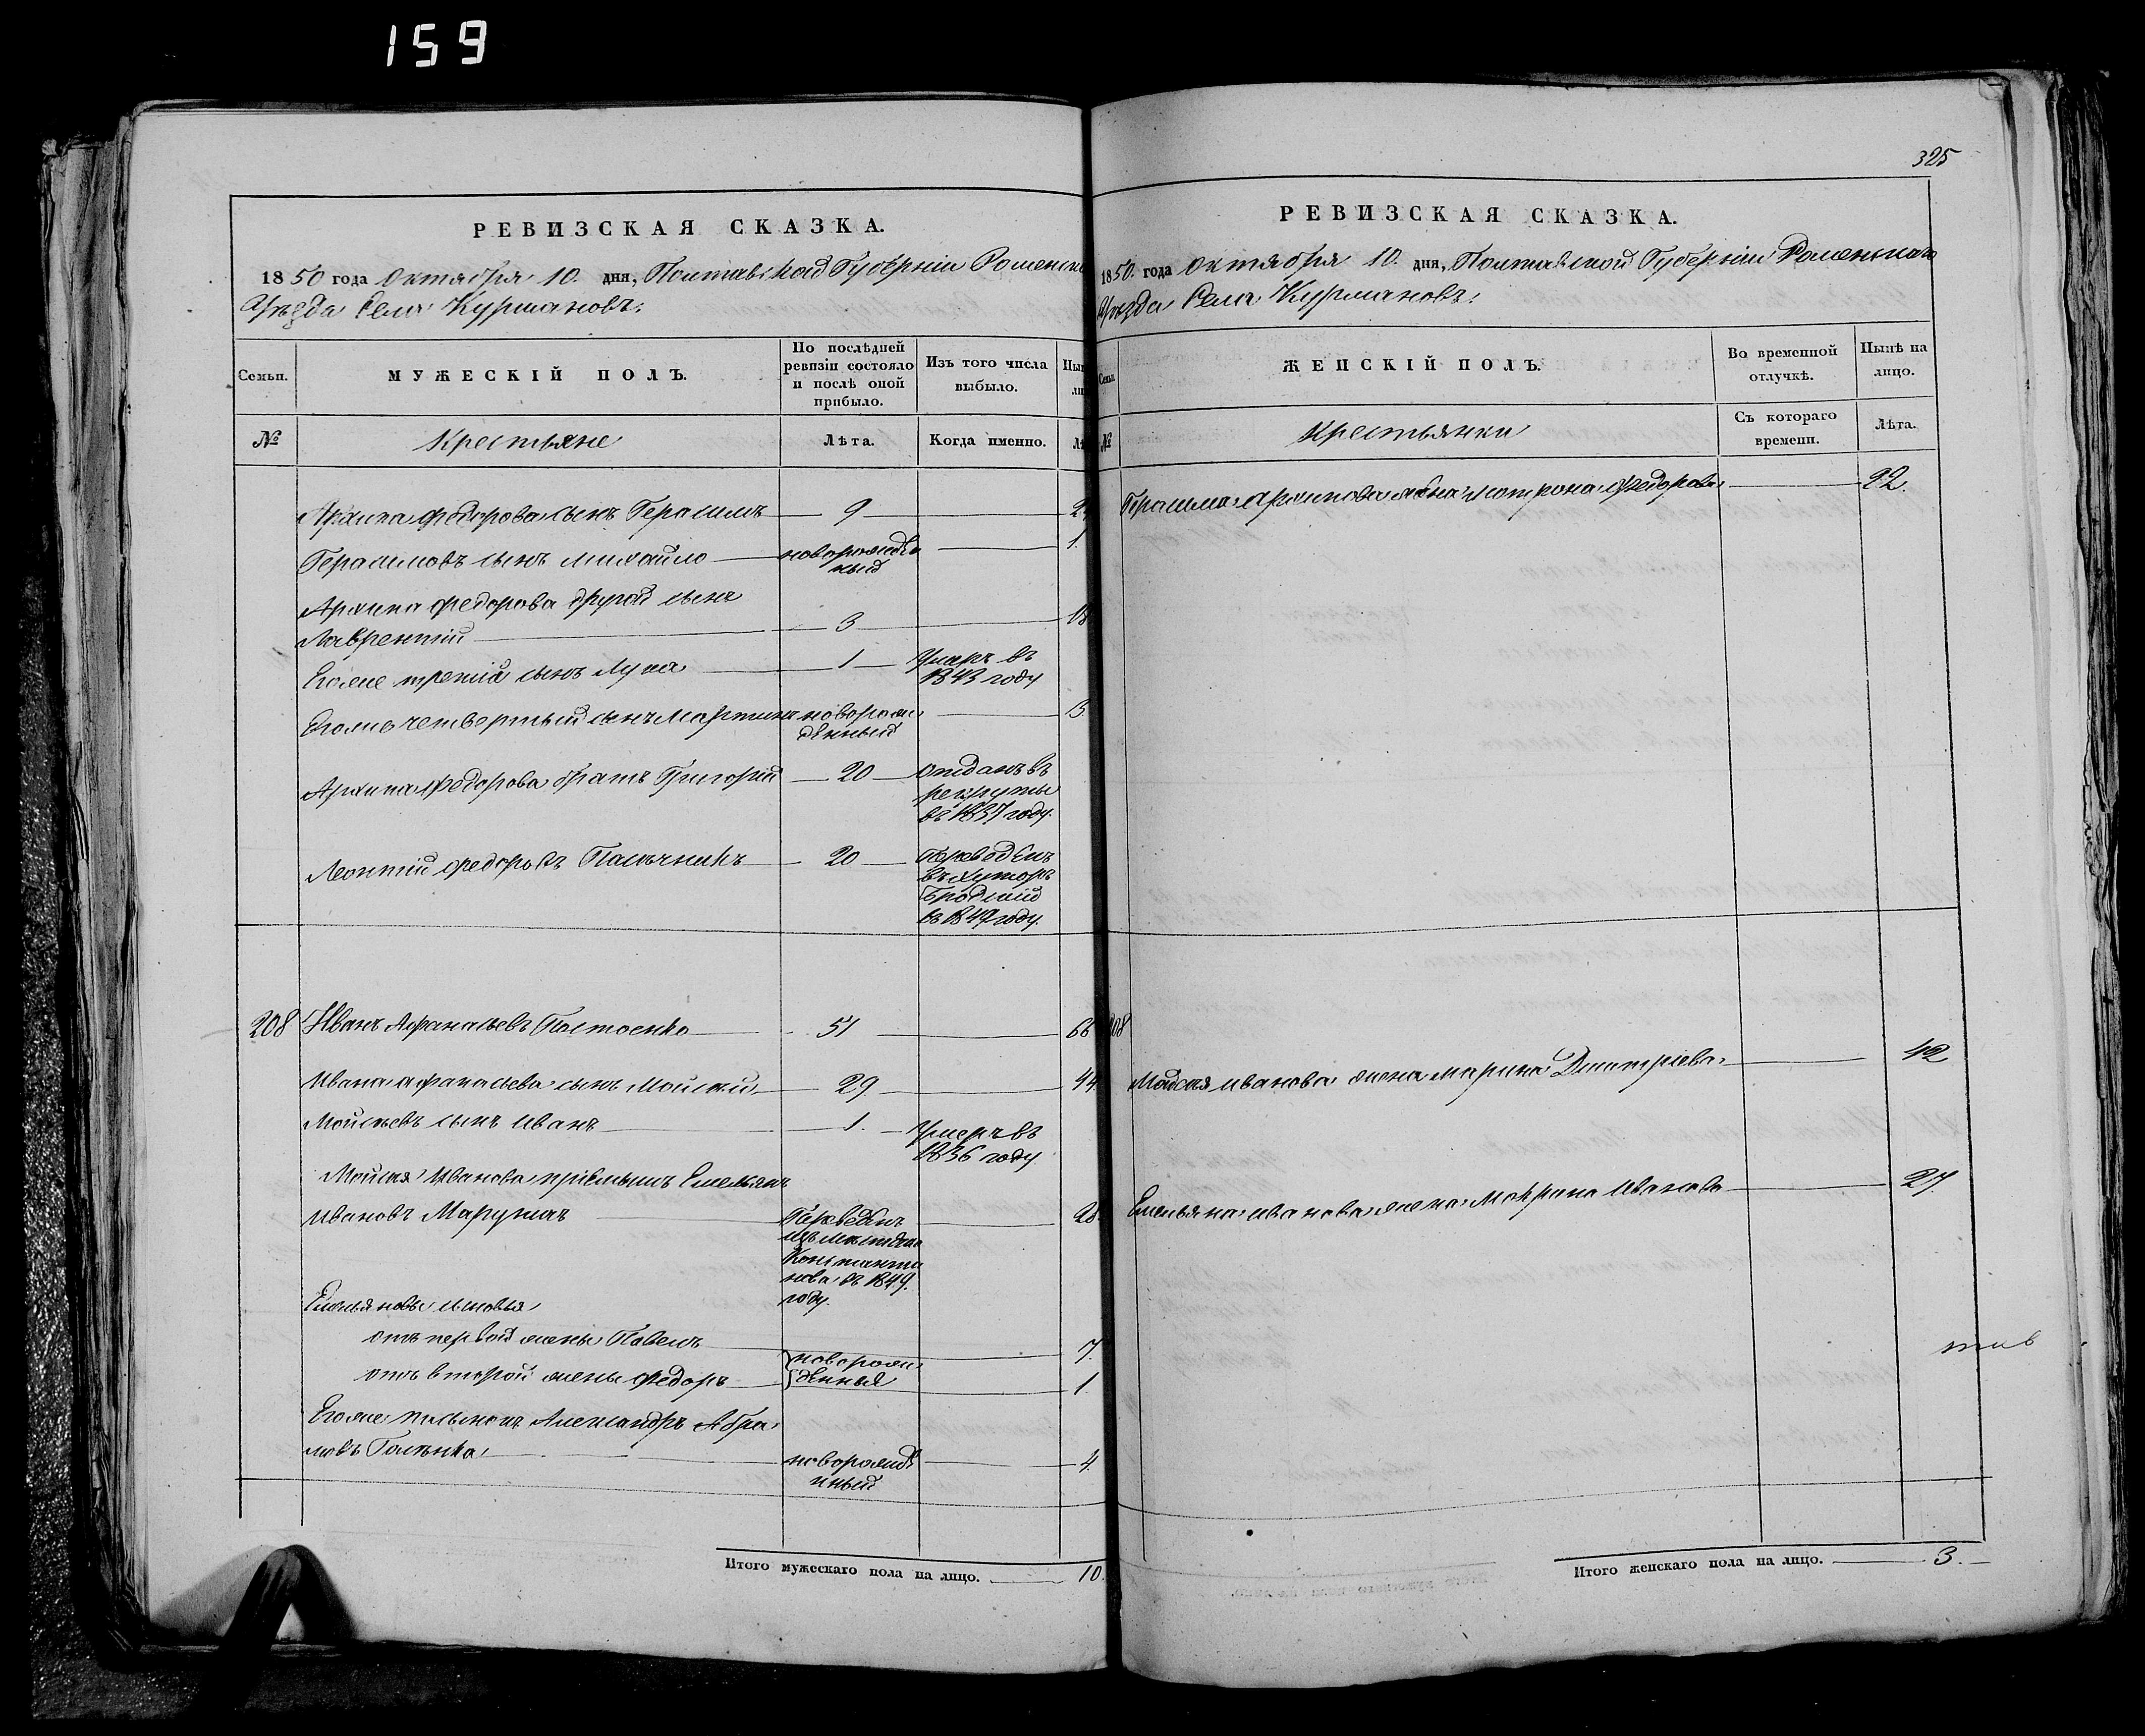 159
РЕВИЗСКАЯ СКАЗКА.
1850 года Октября 10. дня, Полтавской Губерніи Роменск
Уѣзда Села Курмановъ:
Семьи.
МУЖЕСКІЙ ПОЛЪ.
По послѣдней ревизіи состояло и послѣ оной прибыло.
Изъ того числа выбыло.
№
Крестьяне
Лѣта.
Когда именно.
Архипа Федорова сынъ Герасимъ 9
Герасимовъ сынъ Михайло новорожденный 1.
Архипа Федорова другой сынъ
Лаврентій 3 18
Егоже третій сынъ Лука 1 Умеръ въ 1843 году
Егоже четвертый сынъ Мартинъ новорожденный 13.
Архипа Федорова братъ Григорій 20 Отданъ въ рекруты въ 1837 году.
Леонтій Федоровъ Пасѣчникъ 20 Переведенъ въ хуторъ Бродскій въ 1849 году.
208 Иванъ Афанасьевъ Постоенко 51 66
Ивана Афанасьева сынъ Мойсей 29. 44.
Мойсѣевъ сынъ Иванъ 1. Умеръ въ 1836 году
Мойсея Иванова пріемышъ Емельянъ
Ивановъ Марущакъ Переведенъ изъ мѣстечка Константинова въ 1849. году. 28.
Емельяновы сыновья
отъ первой жены Павелъ 7.
отъ второй жены Федоръ новорожденныя 1.
Егоже пасынокъ Александръ Абра-
мовъ новорожденный 4.
Итого мужескаго пола на лицо. 10.
325
РЕВИЗСКАЯ СКАЗКА.
1850. года Октября 10. дня, Полтавской Губерніи Роменскаго
Уѣзда Села Курмановъ:
ЖЕНСКІЙ ПОЛЪ.
Во временной отлучкѣ.
Нынѣ на лицо.
№
Крестьянки
Съ котораго времени.
Лѣта.
Герасима Архипова жена Мотрона Федорова 22.
208
Мойсея Иванова жена Марина Дмитріева 42
Емельяна Иванова жена Мокрина Иванова 27.
Итого женскаго пола на лицо. 3.